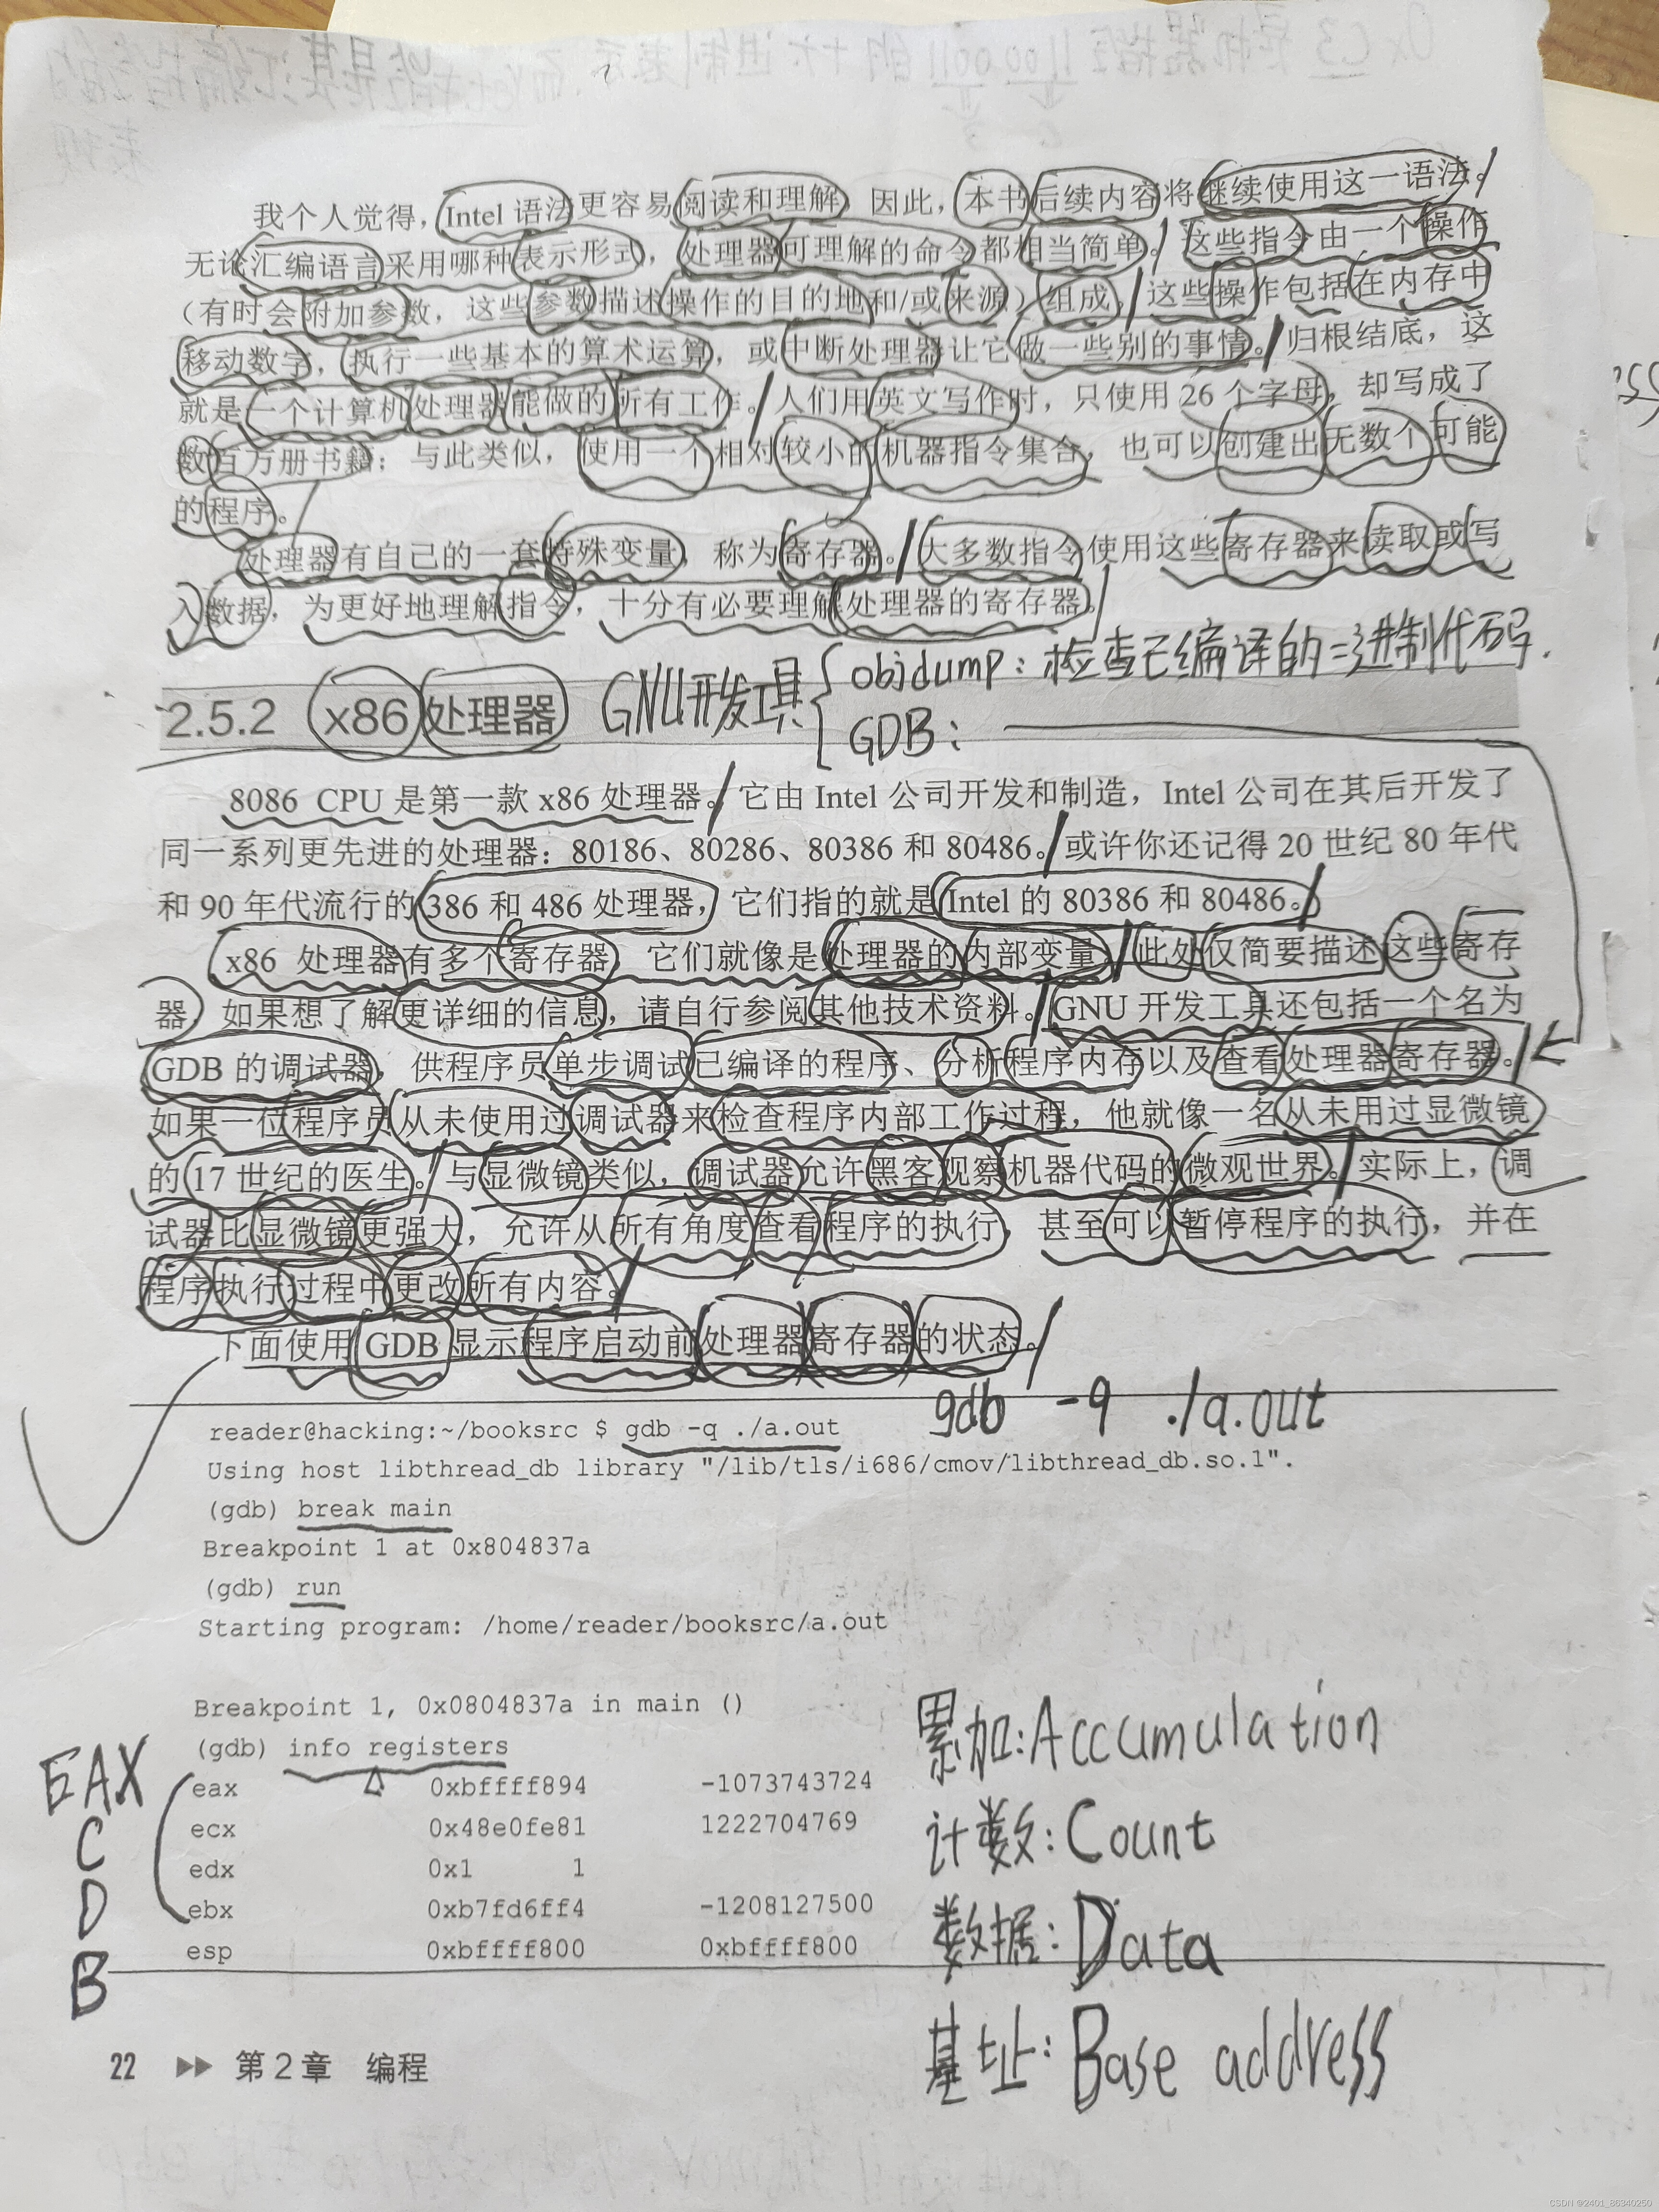 我个人觉得，Intel 语法更容易阅读和理解，因此，本书后续内容将继续使用这一语法。
无论汇编语言采用哪种表示形式，处理器可理解的命令都相当简单。这些指令由一个操作
（有时会附加参数，这些参数描述操作的目的地和/或来源）组成，这些操作包括在内存中
移动数字，执行一些基本的算术运算，或中断处理器让它做一些别的事情。归根结底，这
就是一个计算机处理器能做的所有工作。人们用英文写作时，只使用 26 个字母，却写成了
数百万册书籍；与此类似，使用一个相对较小的机器指令集合，也可以创建出无数个可能
的程序。
处理器有自己的一套特殊变量，称为寄存器。大多数指令使用这些寄存器来读取或写
入数据，为更好地理解指令，十分有必要理解处理器的寄存器。
2.5.2 x86 处理器
GNU开发工具 objdump：检查已编译的二进制代码.
GDB：
8086 CPU 是第一款 x86 处理器。它由 Intel 公司开发和制造，Intel 公司在其后开发了
同一系列更先进的处理器：80186、80286、80386 和 80486。或许你还记得 20 世纪 80 年代
和 90 年代流行的 386 和 486 处理器，它们指的就是 Intel 的 80386 和 80486。
x86 处理器有多个寄存器，它们就像是处理器的内部变量，此处仅简要描述这些寄存
器，如果想了解更详细的信息，请自行参阅其他技术资料。GNU 开发工具还包括一个名为
GDB 的调试器，供程序员单步调试已编译的程序、分析程序内存以及查看处理器寄存器。
如果一位程序员从未使用过调试器来检查程序内部工作过程，他就像一名从未用过显微镜
的 17 世纪的医生。与显微镜类似，调试器允许黑客观察机器代码的微观世界。实际上，调
试器比显微镜更强大，允许从所有角度查看程序的执行，甚至可以暂停程序的执行，并在
程序执行过程中更改所有内容。
下面使用 GDB 显示程序启动前处理器寄存器的状态。
gdb -q ./a.out
reader@hacking:~/booksrc $ gdb -q ./a.out
Using host libthread_db library "/lib/tls/i686/cmov/libthread_db.so.1".
(gdb) break main
Breakpoint 1 at 0x804837a
(gdb) run
Starting program: /home/reader/booksrc/a.out
Breakpoint 1, 0x0804837a in main ()
(gdb) info registers
eax 0xbffff894 -1073743724
ecx 0x48e0fe81 1222704769
edx 0x1 1
ebx 0xb7fd6ff4 -1208127500
esp 0xbffff800 0xbffff800
EAX
C
D
B
累加：Accumulation
计数：Count
数据：Data
基址：Base address
22 ▶▶ 第 2 章 编程
CSDN @2401_86340250